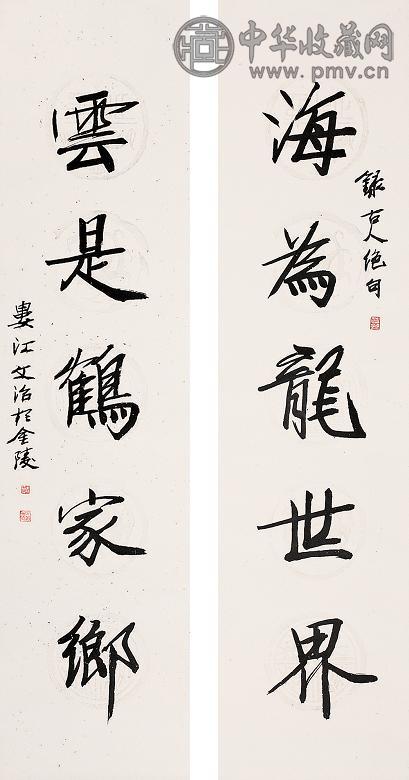 中华收藏网
www.pmv.cn
錄古人绝句
海為龍世界
雲是鶴家鄉
婁江文治於金陵